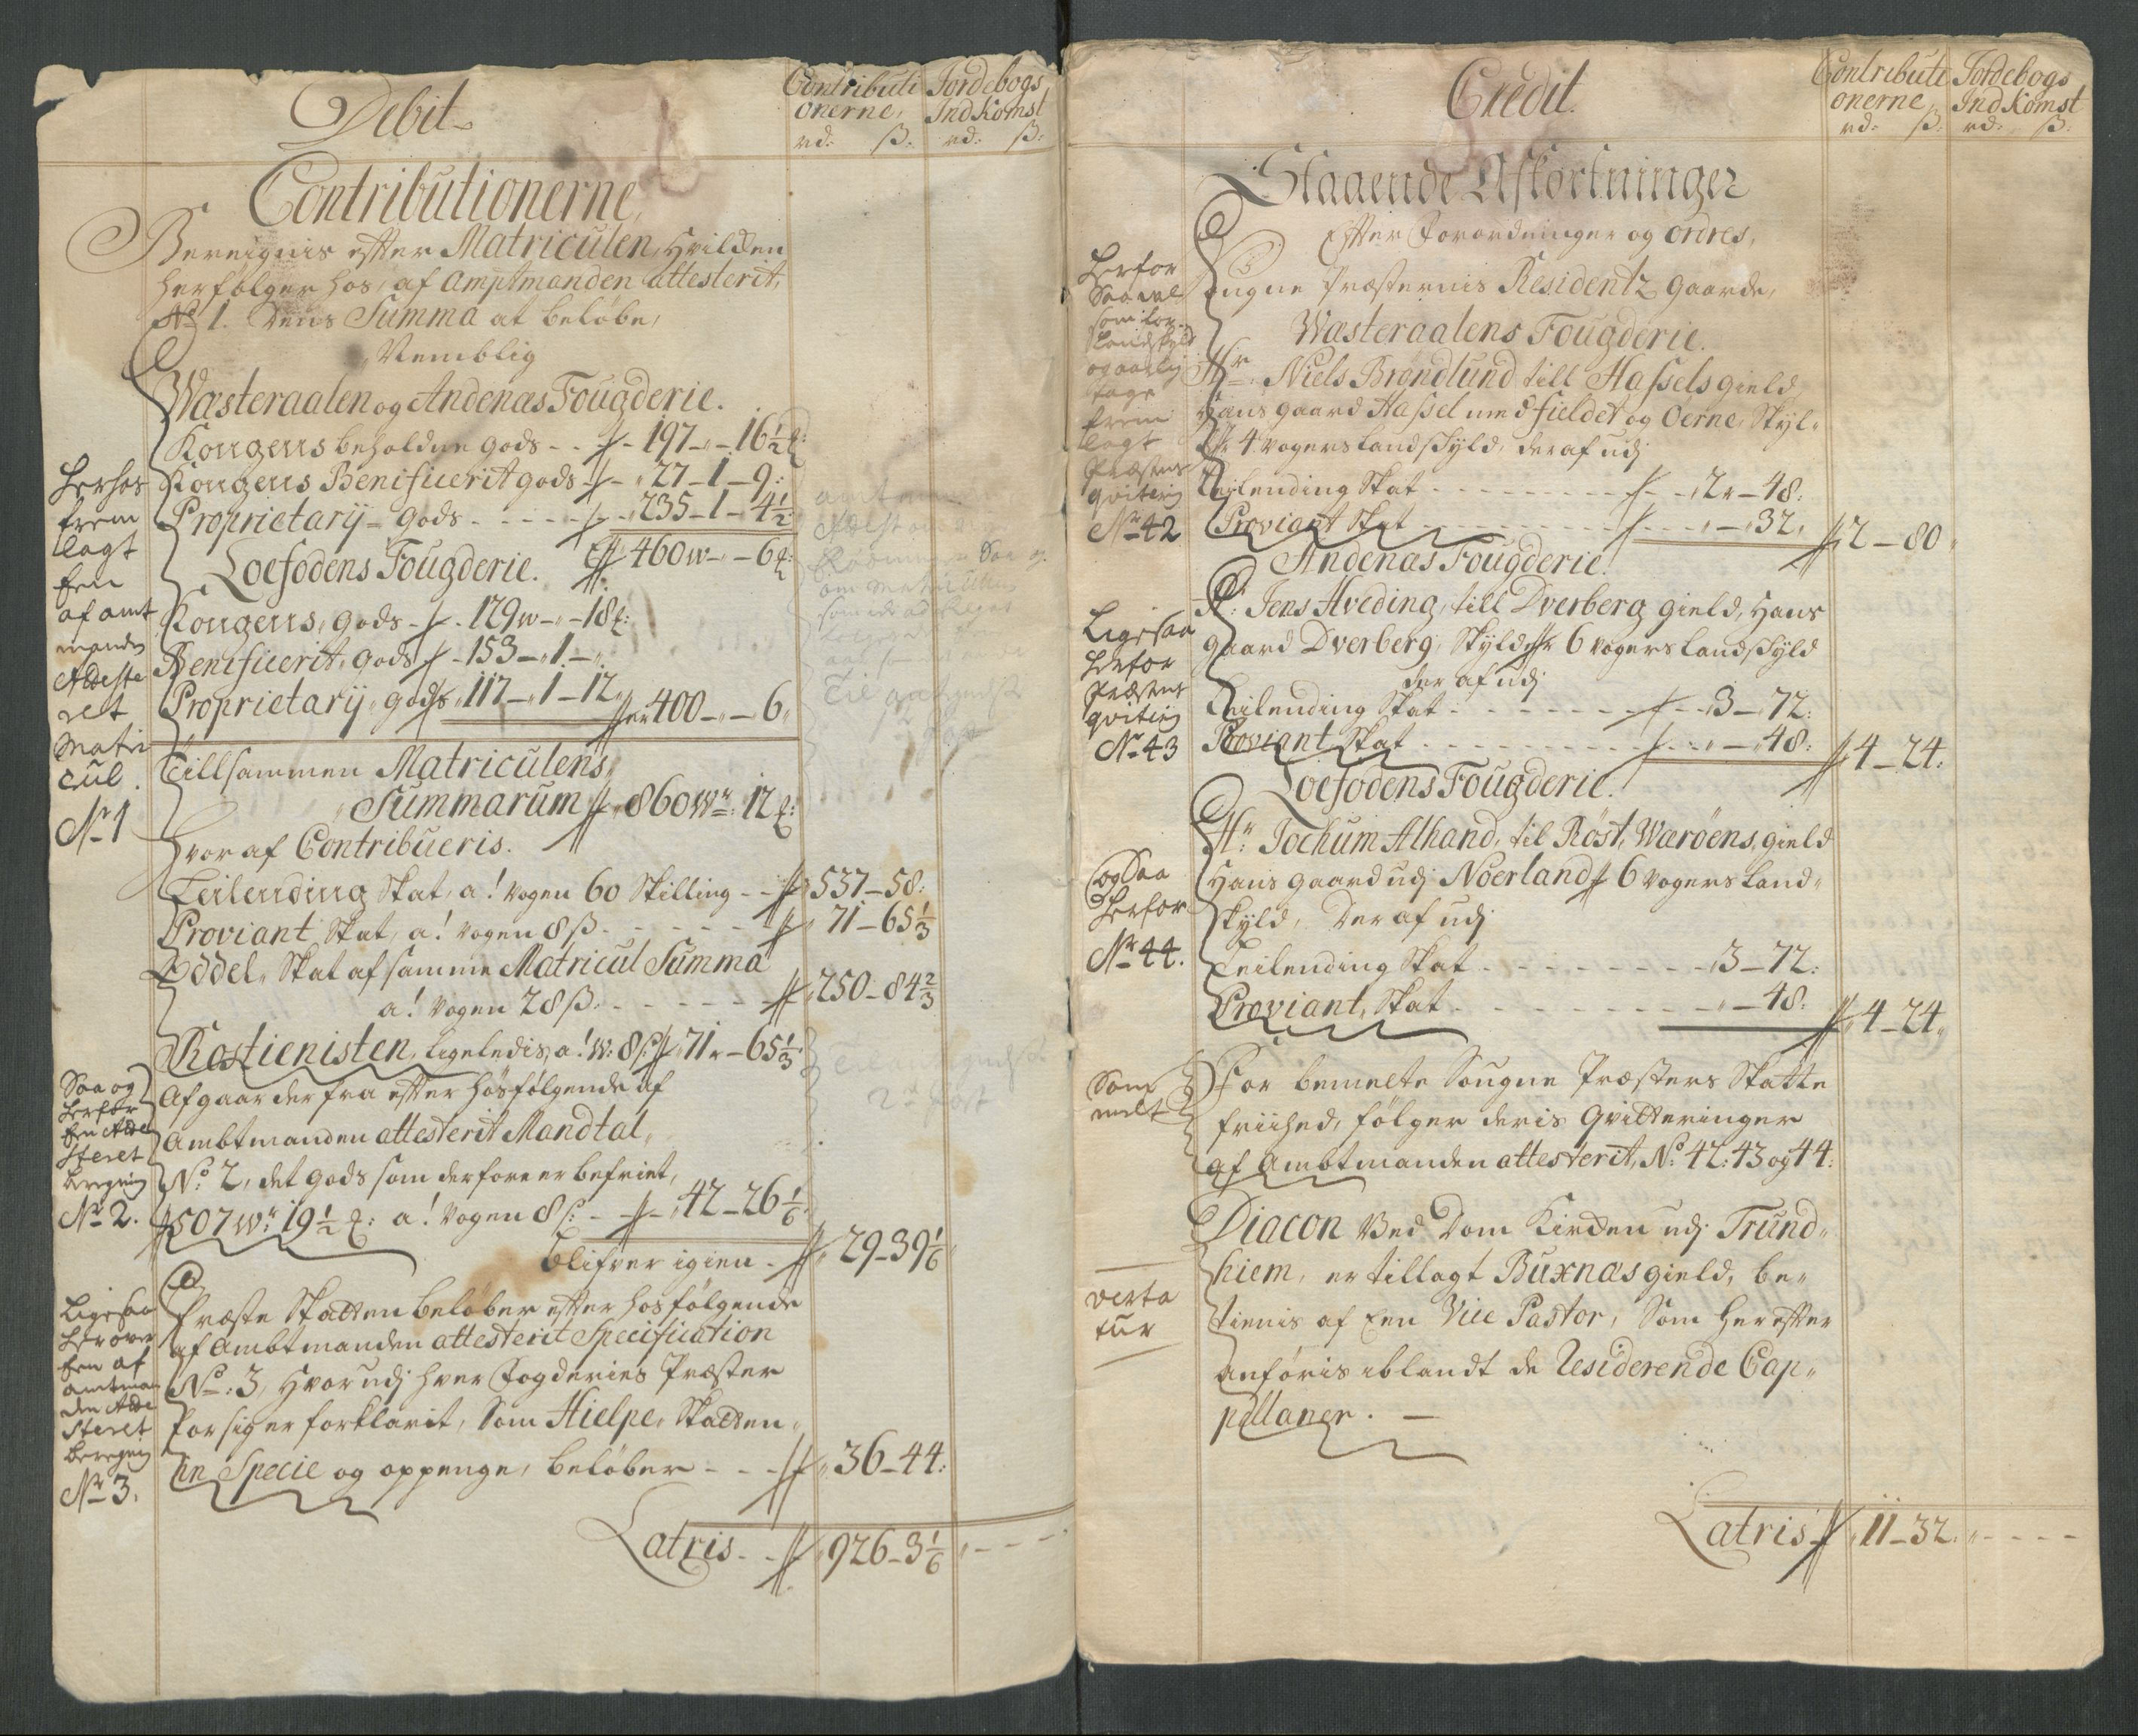 Debit
Contributi Jordebogs
onerne, IndKomst
rd: ß: rd: ß:
Contributionerne,
Bereignis effter Matriculen, Hvilcken
herfølger hos, af Amptmanden attesterit,
No 1. Dens Summa at beløbe,
Nemblig
Wæsteraalen og Andenæs Fougderie.
Kongens beholdne gods - - 197 - - 16½ ℔:
Kongens Benificerit gods - 27 - 1 - 9:
Proprietarij gods - - - - - 235 - 1 - 4½:
460 w - - 6 ℔:
Loefodens Fougderie.
Kongens, gods - - 129 w - - 18 ℔:
Benificerit, gods - 153 - 1 -
Proprietarij, gods 117 - 1 - 12
er 400 - - 6
Tillsammen Matriculens
Summarum 860 Wr: 12 ℔:
Hvor af Contribueris.
Leilending Skat, a! Vogen 60 Skilling - - 537 - 58:
Proviant Skat, a! Vogen 8 ß - - - - - 71 - 65⅓
Oddel, Skat af samme Matricul Summa
a! Vogen 28 ß: - - - - - 250 - 84⅔
Rostienisten, ligeledis, a! W: 8 ß 71 - 65⅓:
Afgaar der fra effter hosfølgende af
Ambtmanden attesterit Mandtal,
No: 2, det gods som derfore er befriet,
507 Wr: 19½ ℔: a! Vogen 8 ß: - - 42 - 26⅙
blifver igien - 29 - 39⅙
Præste Skatten beløber effter hosfølgende
af Ambtmanden attesterit Specification
No: 3, Hvor udj hver Fogderies Præster
for sig er forklarit, Som Hielpe, Skatten,
in Specie og oppenge, beløber - - - 36 - 44:
Latris - - 926 - 3⅙ - - -
Herhos
frem
lagt
Een
af amt
manden
Atteste
ret
Matri
cul.
No 1
Saa og
herfor
Een Atte
steret
beregning
No 2.
Ligesaa
herover
Een af
amtman
den Atte
steret
beregning
No 3.
Credit.
Contributi Jordebogs
onerne, IndKomst
rd: ß: rd: ß:
Staaende Afkortninger
Effter Forordninger og ordres,
Sougne Præsternis Residentz gaarde,
Wæsteraalens Fougderie.
Hr: Niels Brøndlund till Hassels gield
Hans gaard Hassel med fieldet og Oerne, Skyl-
der 4 Vogers landskyld, der af udj
Leilending Skat - - - - - - - 2 - 48:
Proviant Skat - - - - - - - - 32, 2 - 80
Andenæs Fougderie.
Hr: Jens Hveding, till Dverberg gield, Hans
gaard Dverberg, Skylder 6 Vogers landskyld
der af udj
Leilending Skat - - - - - - - 3 - 72:
Proviant Skat - - - - - - - - 48: 4 - 24:
Loefodens Fougderie.
Hr: Jochum Alhand, til Røst, Wærøens, gield
Hans gaard udj Noerland 6 Vogers land-
skyld, Der af udj
Leilending Skat - - - - - - - 3 - 72:
Proviant, Skat - - - - - - - - 48: 4 - 24,
For bemelte Sougne Præsters Skatte
friihed, følger deris Qvitteringer
af Ambtmanden attesterit, No: 42: 43 og 44:
Diacon Ved Dom Kircken udj Trund-
hiem, er tillagt Buxnæs gield, be-
tienis af Een Vice Pastor, Som her effter
anføris iblandt de Residerende Cap-
pellaner. -
Latris 11 - 32: - - - -
Herfor
Saavel
som for
Landskyld
og aarlig
tage
frem
lagt
Præstens
qvitering
No 42
Ligesaa
herfor
Præstens
qvitering
No 43
og Saa
herfor
No 44.
Som
melt
verta
tur